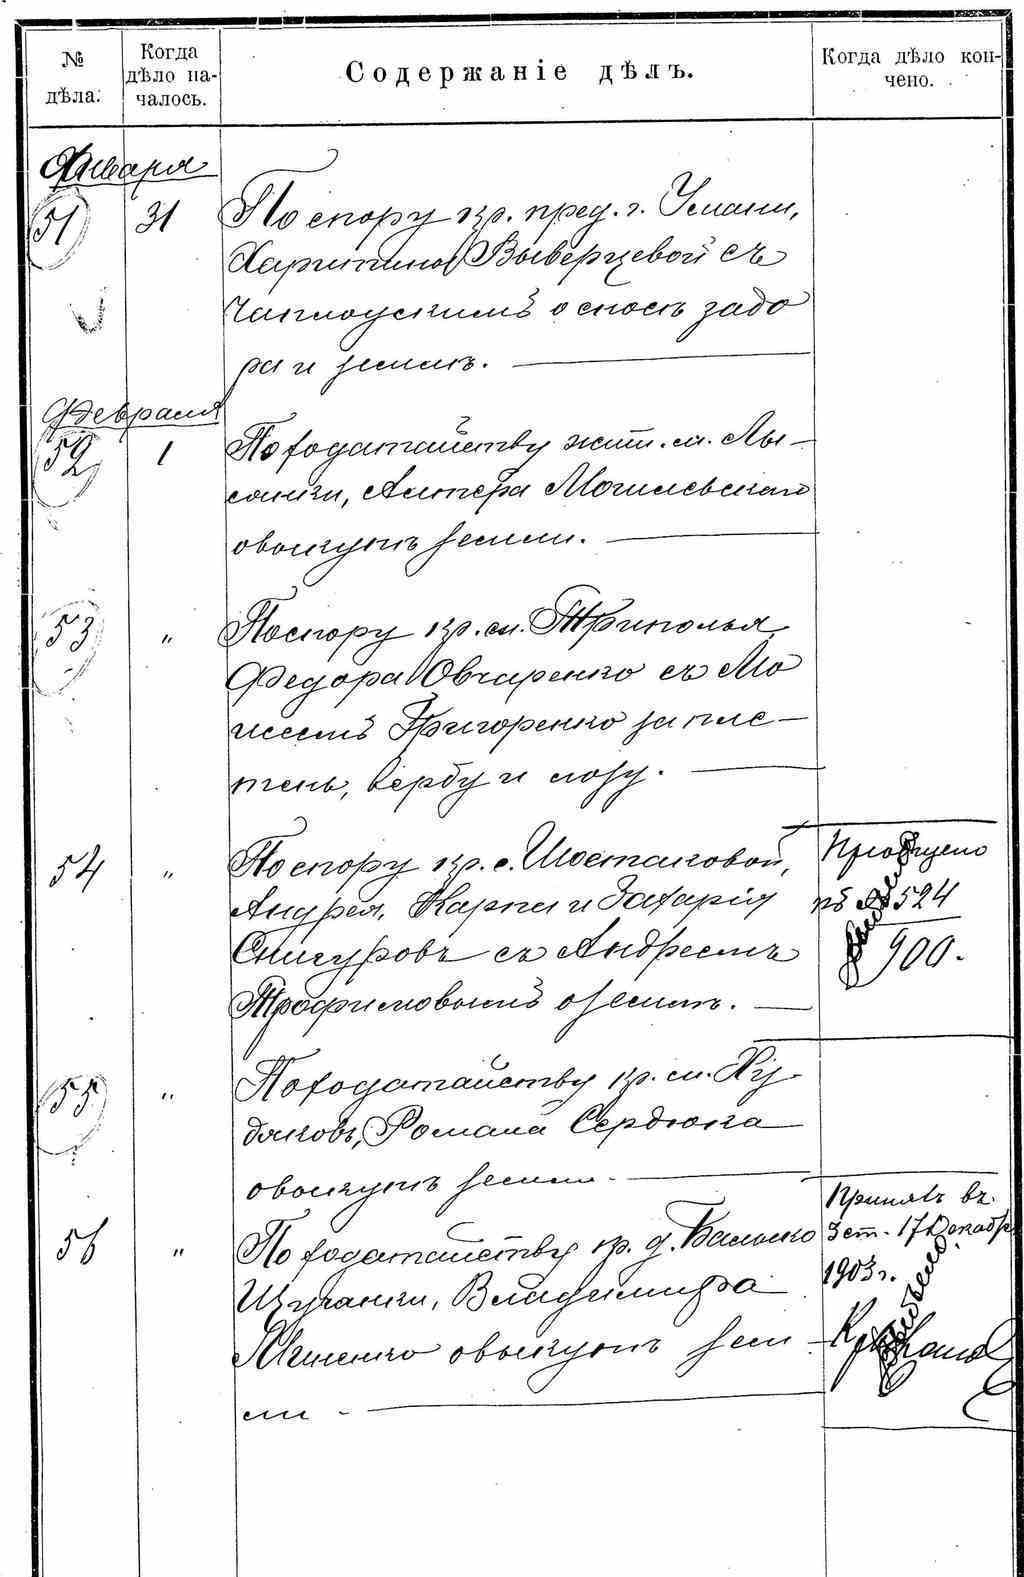 № дѣла.
Когда дѣло на-
чалось.
Содержаніе дѣлъ.
Когда дѣло кон-
чено.
Января
51 31 По спору кр. пред. г. Умани,
Харитины Выверцевой съ
Чаплоускимъ о сносѣ забо
ра и землѣ.
Февраля
52 1 По ходатайству жит. м. Лы-
сянки, Алтера Могилевскаго
о выкупѣ земли.
53 " По спору кр. м. Триполья,
Федора Овчаренко съ Мо
исеемъ Григоренко за пле-
тень, вербу и лозу.
54 " По спору кр. с. Шостаковой,
Андрея, Карпа и Захарія
Снигуровъ съ Андреемъ
Трофимовымъ о землѣ.
къ № 524
900.
55 " По ходатайству кр. м. Ху-
дяковъ, Романа Сердюка
о выкупѣ земли.
56 " По ходатайству кр. д.
Щучанки, Владимира
о выкупѣ зем
ли
Принялъ въ
17 Декабр
1903 г.